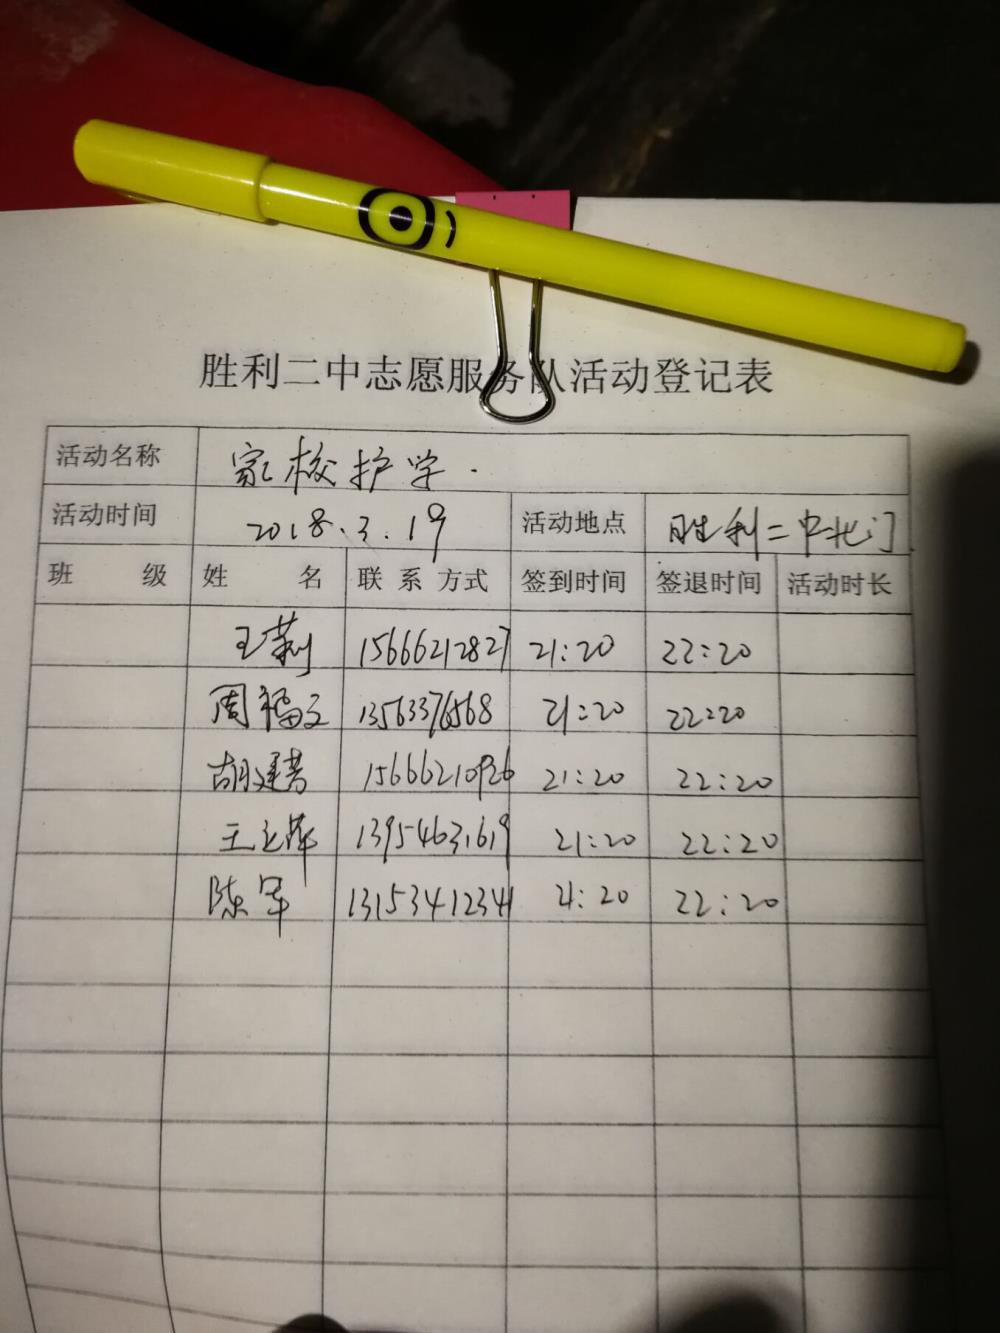 胜利二中志愿服务队活动登记表
活动名称 家校护学.
活动时间 2018.3.19 活动地点 胜利二中北门
班 级 姓 名 联 系 方式 签到时间 签退时间 活动时长
王莉 15666212827 21:20 22:20
周福文 13563376568 21:20 22:20
胡建 15666210926 21:20 22:20
王立萍 13954631619 21:20 22:20
陈军 13153412341 21:20 22:20